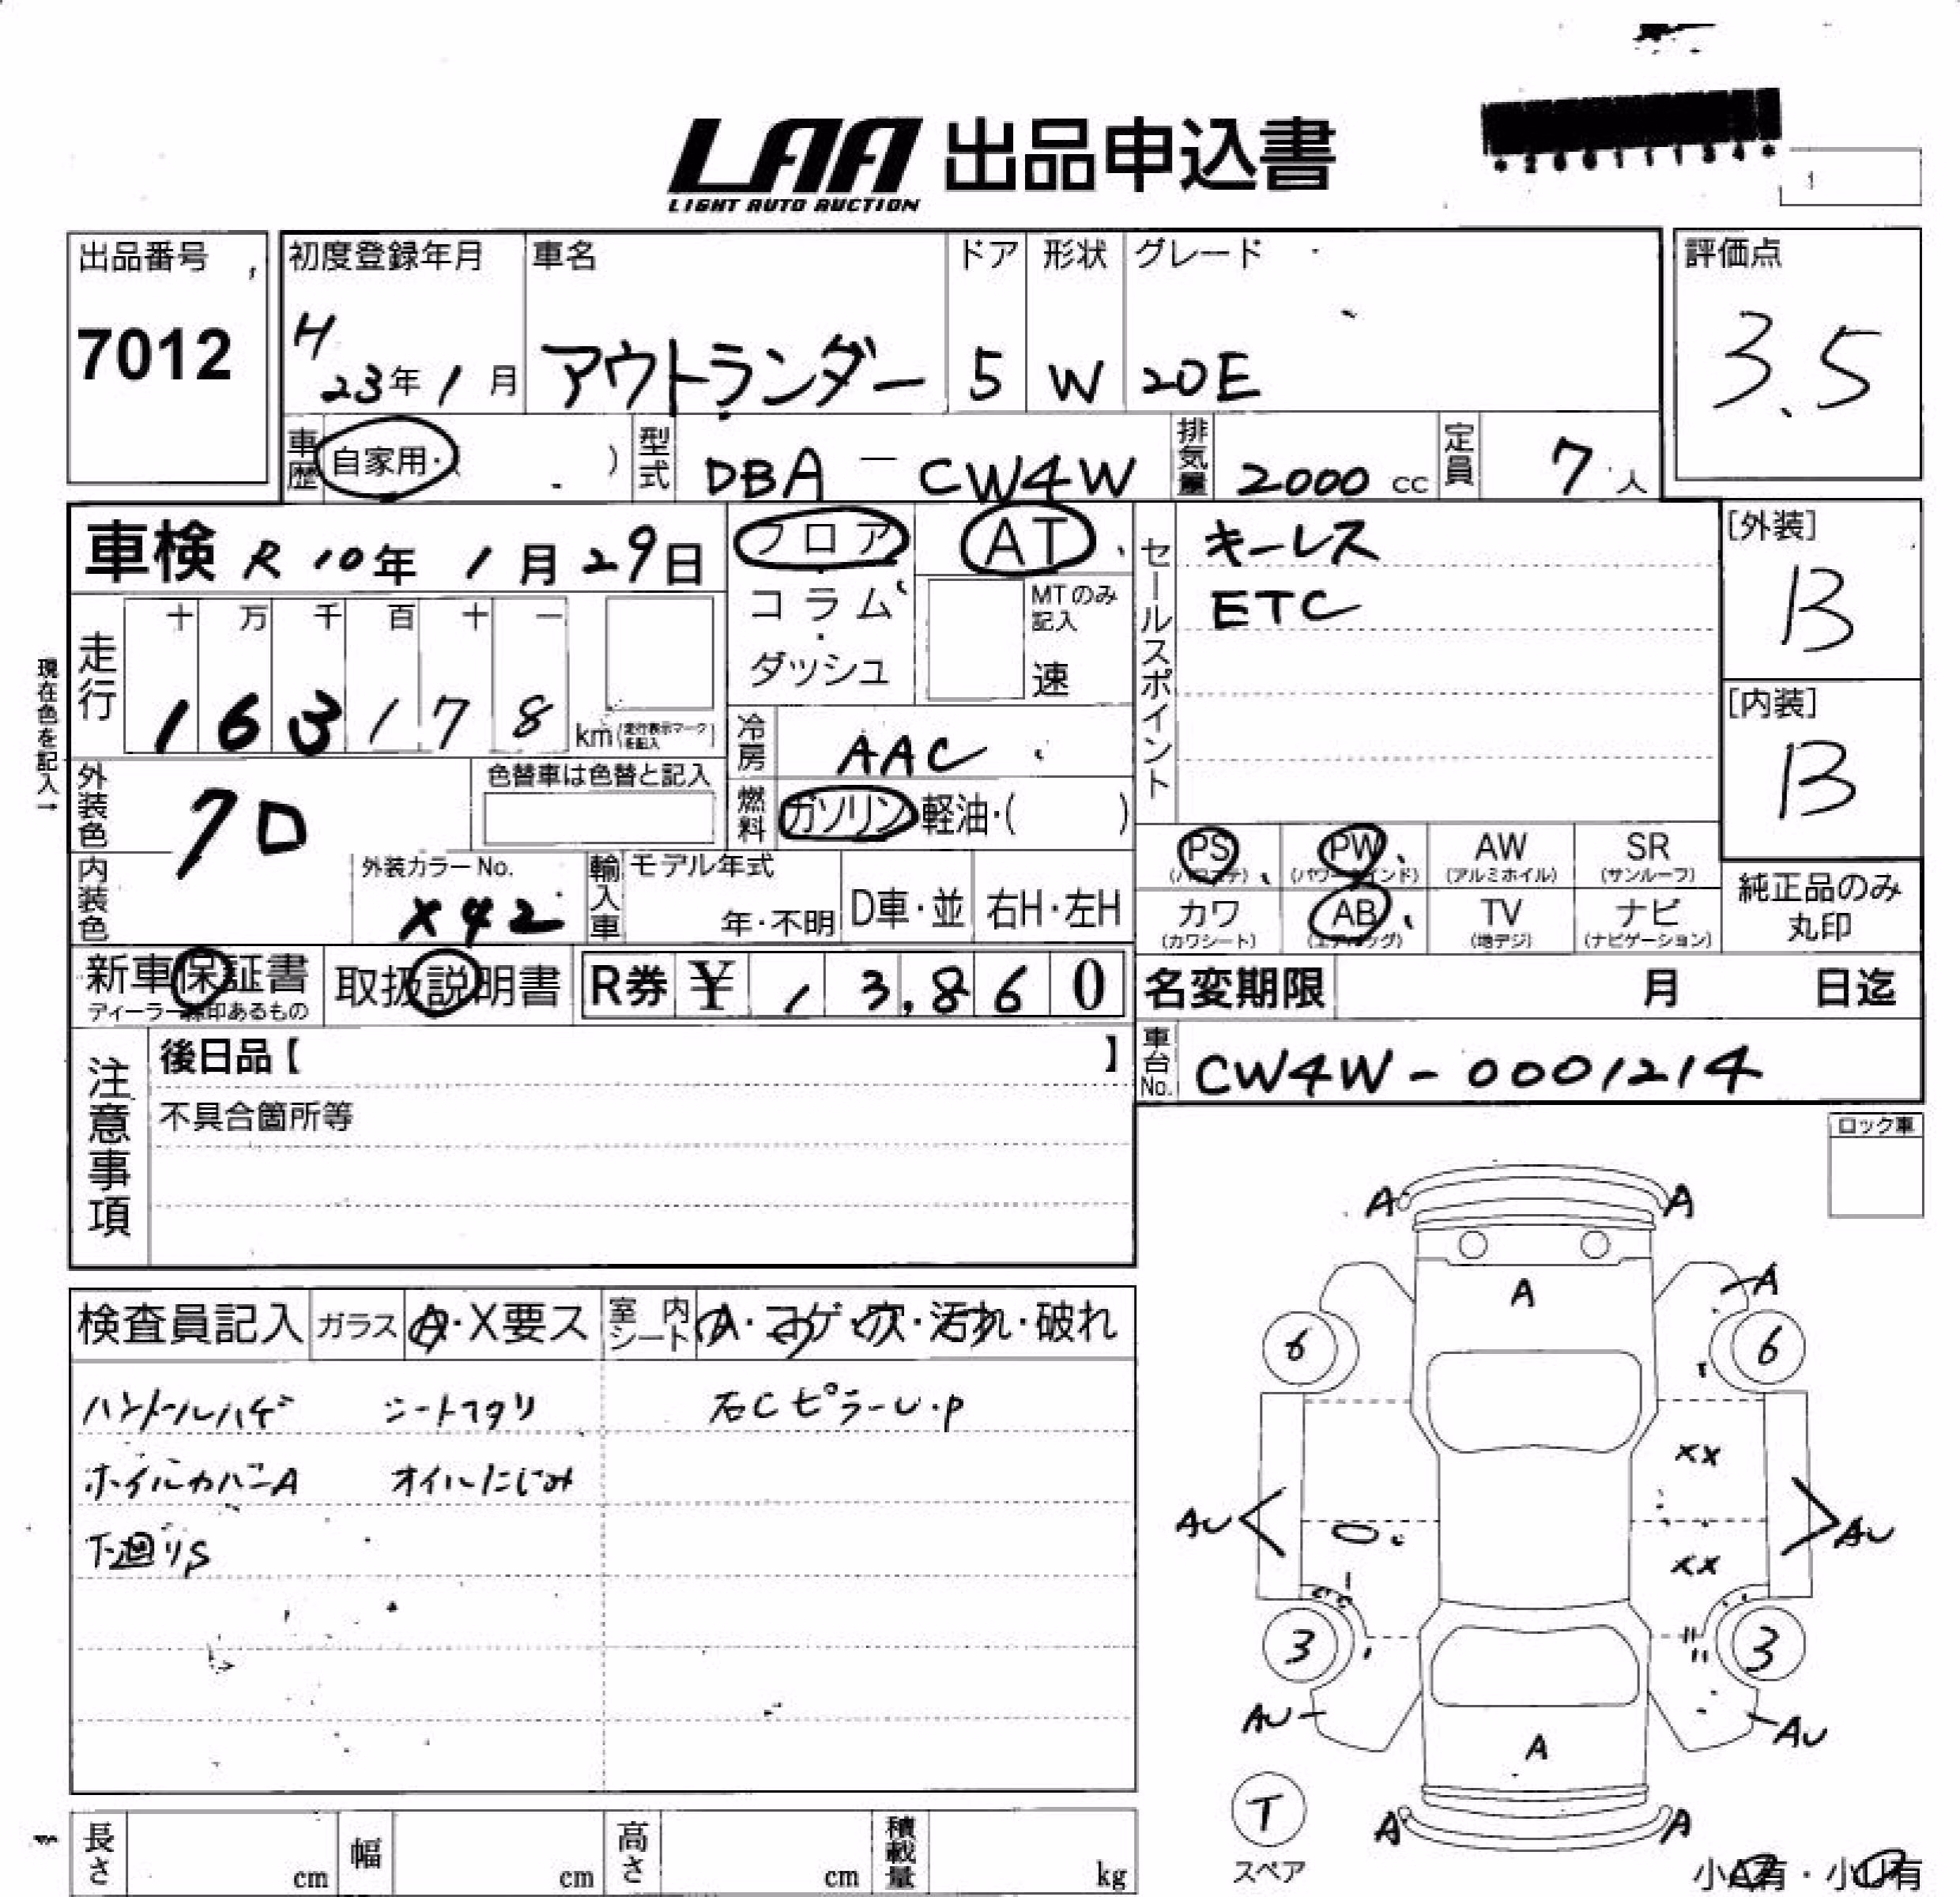 LAA 出品申込書
LIGHT AUTO AUCTION
*26011134*
出品番号
7012
初度登録年月 車名 ドア 形状 グレード
H 23年 1月 アウトランダー 5 W 20E
評価点
3.5
車歴 自家用・( ) 型式 DBA - CW4W 排気量 2000 cc 定員 7 人
車検 R 10年 1月 29日
フロア・コラム・ダッシュ
AT
MTのみ記入
速
セールスポイント
キーレス
ETC
[外装]
B
[内装]
B
現在色を記入→
走行
十 万 千 百 十 一
1 6 3 1 7 8 km (走行表示マークを記入)
冷房 AAC
燃料 ガソリン・軽油・( )
外装色 クロ
色替車は色替と記入
内装色
外装カラーNo.
X42
輸入車 モデル年式
年・不明 D車・並 右H・左H
PS (パワステ) PW (パワーウインド) AW (アルミホイル) SR (サンルーフ)
カワ (カワシート) AB (エアバッグ) TV (地デジ) ナビ (ナビゲーション)
純正品のみ丸印
新車保証書 取扱説明書 R券 ¥ 1 3,8 6 0
名変期限 月 日迄
車台No. CW4W-0001214
注意事項
後日品【 】
不具合箇所等
ロック車
検査員記入 ガラス A・X要ス 室内シート A・コゲ・穴・汚れ・破れ
ハンドルハゲ シートヘタリ 右Cピラーu・P
ホイルカバーA オイルにじみ
下廻りS
A A
A A
6 6
XX
AU AU
XX
3 3
AU AU
A
T
A A
スペア
小A有・小U有
長さ cm 幅 cm 高さ cm 積載量 kg